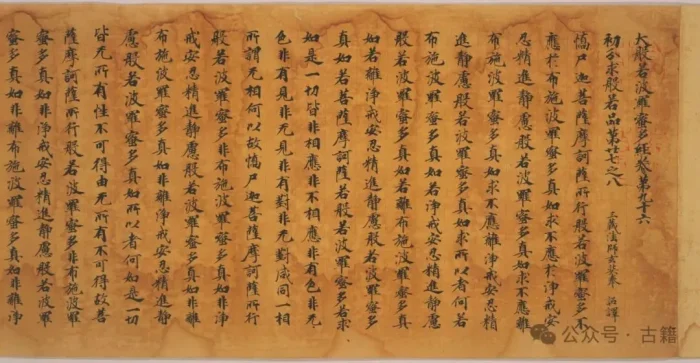 大般若波羅蜜多經卷第九十六
初分求般若品第廿七之八
三藏法師玄奘奉 詔譯
憍尸迦菩薩摩訶薩所行般若波羅蜜多不
應於布施波羅蜜多真如求不應於淨戒安
忍精進靜慮般若波羅蜜多真如求不應離
布施波羅蜜多真如求不應離淨戒安忍精
進靜慮般若波羅蜜多真如求所以者何若
布施波羅蜜多真如若淨戒安忍精進靜慮
般若波羅蜜多真如若離布施波羅蜜多真
如若離淨戒安忍精進靜慮般若波羅蜜多
真如若菩薩摩訶薩若般若波羅蜜多若求
如是一切皆非相應非不相應非有色非无
色非有見非无見非有對非无對咸同一相
所謂无相何以故憍尸迦菩薩摩訶薩所行
般若波羅蜜多非布施波羅蜜多真如非淨
戒安忍精進靜慮般若波羅蜜多真如非離
布施波羅蜜多真如非離淨戒安忍精進靜
慮般若波羅蜜多真如所以者何如是一切
皆无所有性不可得由无所有不可得故菩
薩摩訶薩所行般若波羅蜜多非布施波羅
蜜多真如非淨戒安忍精進靜慮般若波羅
蜜多真如非離布施波羅蜜多真如非離淨
公众号 · 古籍